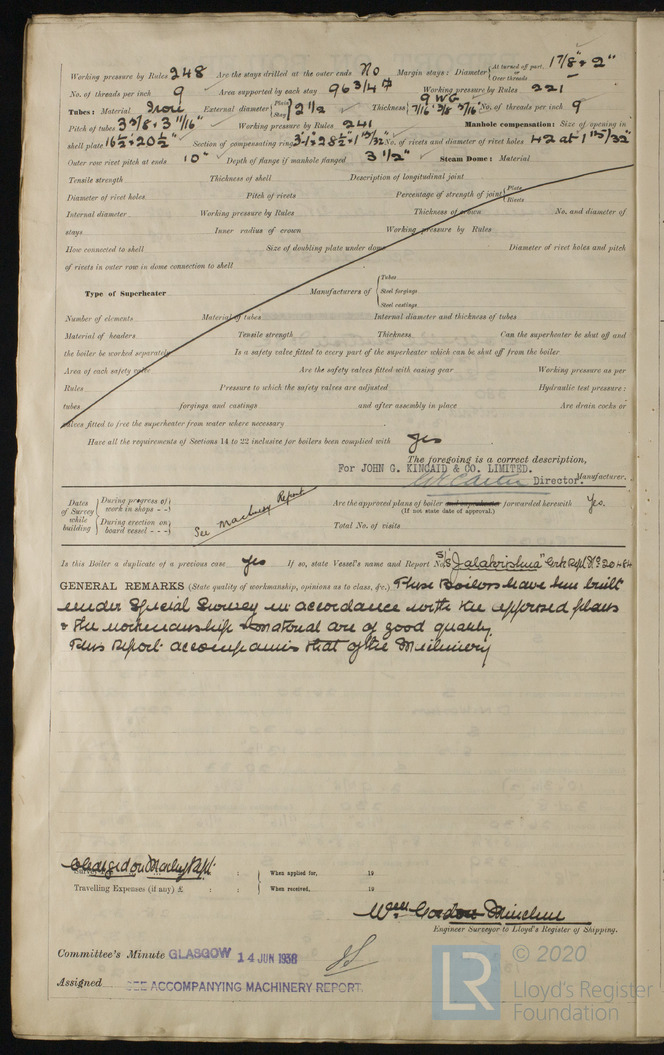 Working pressure by Rules 248 Are the stays drilled at the outer ends No Margin stays: Diameter { At turned off part, or Over threads 1 7/8" & 2"
No. of threads per inch 9 Area supported by each stay 96 3/4 Working pressure by Rules 221
Tubes: Material Iron External diameter { Plain Stay } 2 1/2 Thickness { 9 WG 7/16" 3/8 5/16 No. of threads per inch 9
Pitch of tubes 3 5/8 x 3 11/16" Working pressure by Rules 241 Manhole compensation: Size of opening in
shell plate 16 1/2" x 20 1/2" Section of compensating ring No. of rivets and diameter of rivet holes 42 at 1 15/32"
Outer row rivet pitch at ends 10" Depth of flange if manhole flanged 3 1/2" Steam Dome: Material
Tensile strength Thickness of shell Description of longitudinal joint
Diameter of rivet holes Pitch of rivets Percentage of strength of joint { Plate Rivets
Internal diameter Working pressure by Rules Thickness of crown No. and diameter of
stays Inner radius of crown Working pressure by Rules
How connected to shell Size of doubling plate under dome Diameter of rivet holes and pitch
of rivets in outer row in dome connection to shell
Type of Superheater Manufacturers of { Tubes Steel forgings Steel castings
Number of elements Material of tubes Internal diameter and thickness of tubes
Material of headers Tensile strength Thickness Can the superheater be shut off and
the boiler be worked separately Is a safety valve fitted to every part of the superheater which can be shut off from the boiler
Area of each safety valve Are the safety valves fitted with easing gear Working pressure as per
Rules Pressure to which the safety valves are adjusted Hydraulic test pressure:
tubes forgings and castings and after assembly in place Are drain cocks or
valves fitted to free the superheater from water where necessary
Have all the requirements of Sections 14 to 22 inclusive for boilers been complied with Yes
The foregoing is a correct description,
For JOHN G. KINCAID & CO. LIMITED.
Director. Manufacturer.
Dates of Survey while building { During progress of work in shops - - } { During erection on board vessel - - - } See Machinery Report
Are the approved plans of boiler and superheater forwarded herewith Yes.
(If not state date of approval.)
Total No. of visits
Is this Boiler a duplicate of a previous case Yes If so, state Vessel's name and Report No. S/S "Jalakrishna" Grk Rpt No 20484
GENERAL REMARKS (State quality of workmanship, opinions as to class, &c.) These Boilers have been built
under Special Survey in accordance with the approved plans
& the workmanship & material are of good quality.
This Report accompanies that of the Machinery
Charged on Machy Rpt.
Survey : : } When applied for, 19
Travelling Expenses (if any) £ : : } When received, 19
Wm Gordon
Engineer Surveyor to Lloyd's Register of Shipping.
Committee's Minute GLASGOW 14 JUN 1938
Assigned SEE ACCOMPANYING MACHINERY REPORT.
LR © 2020
Lloyd's Register
Foundation